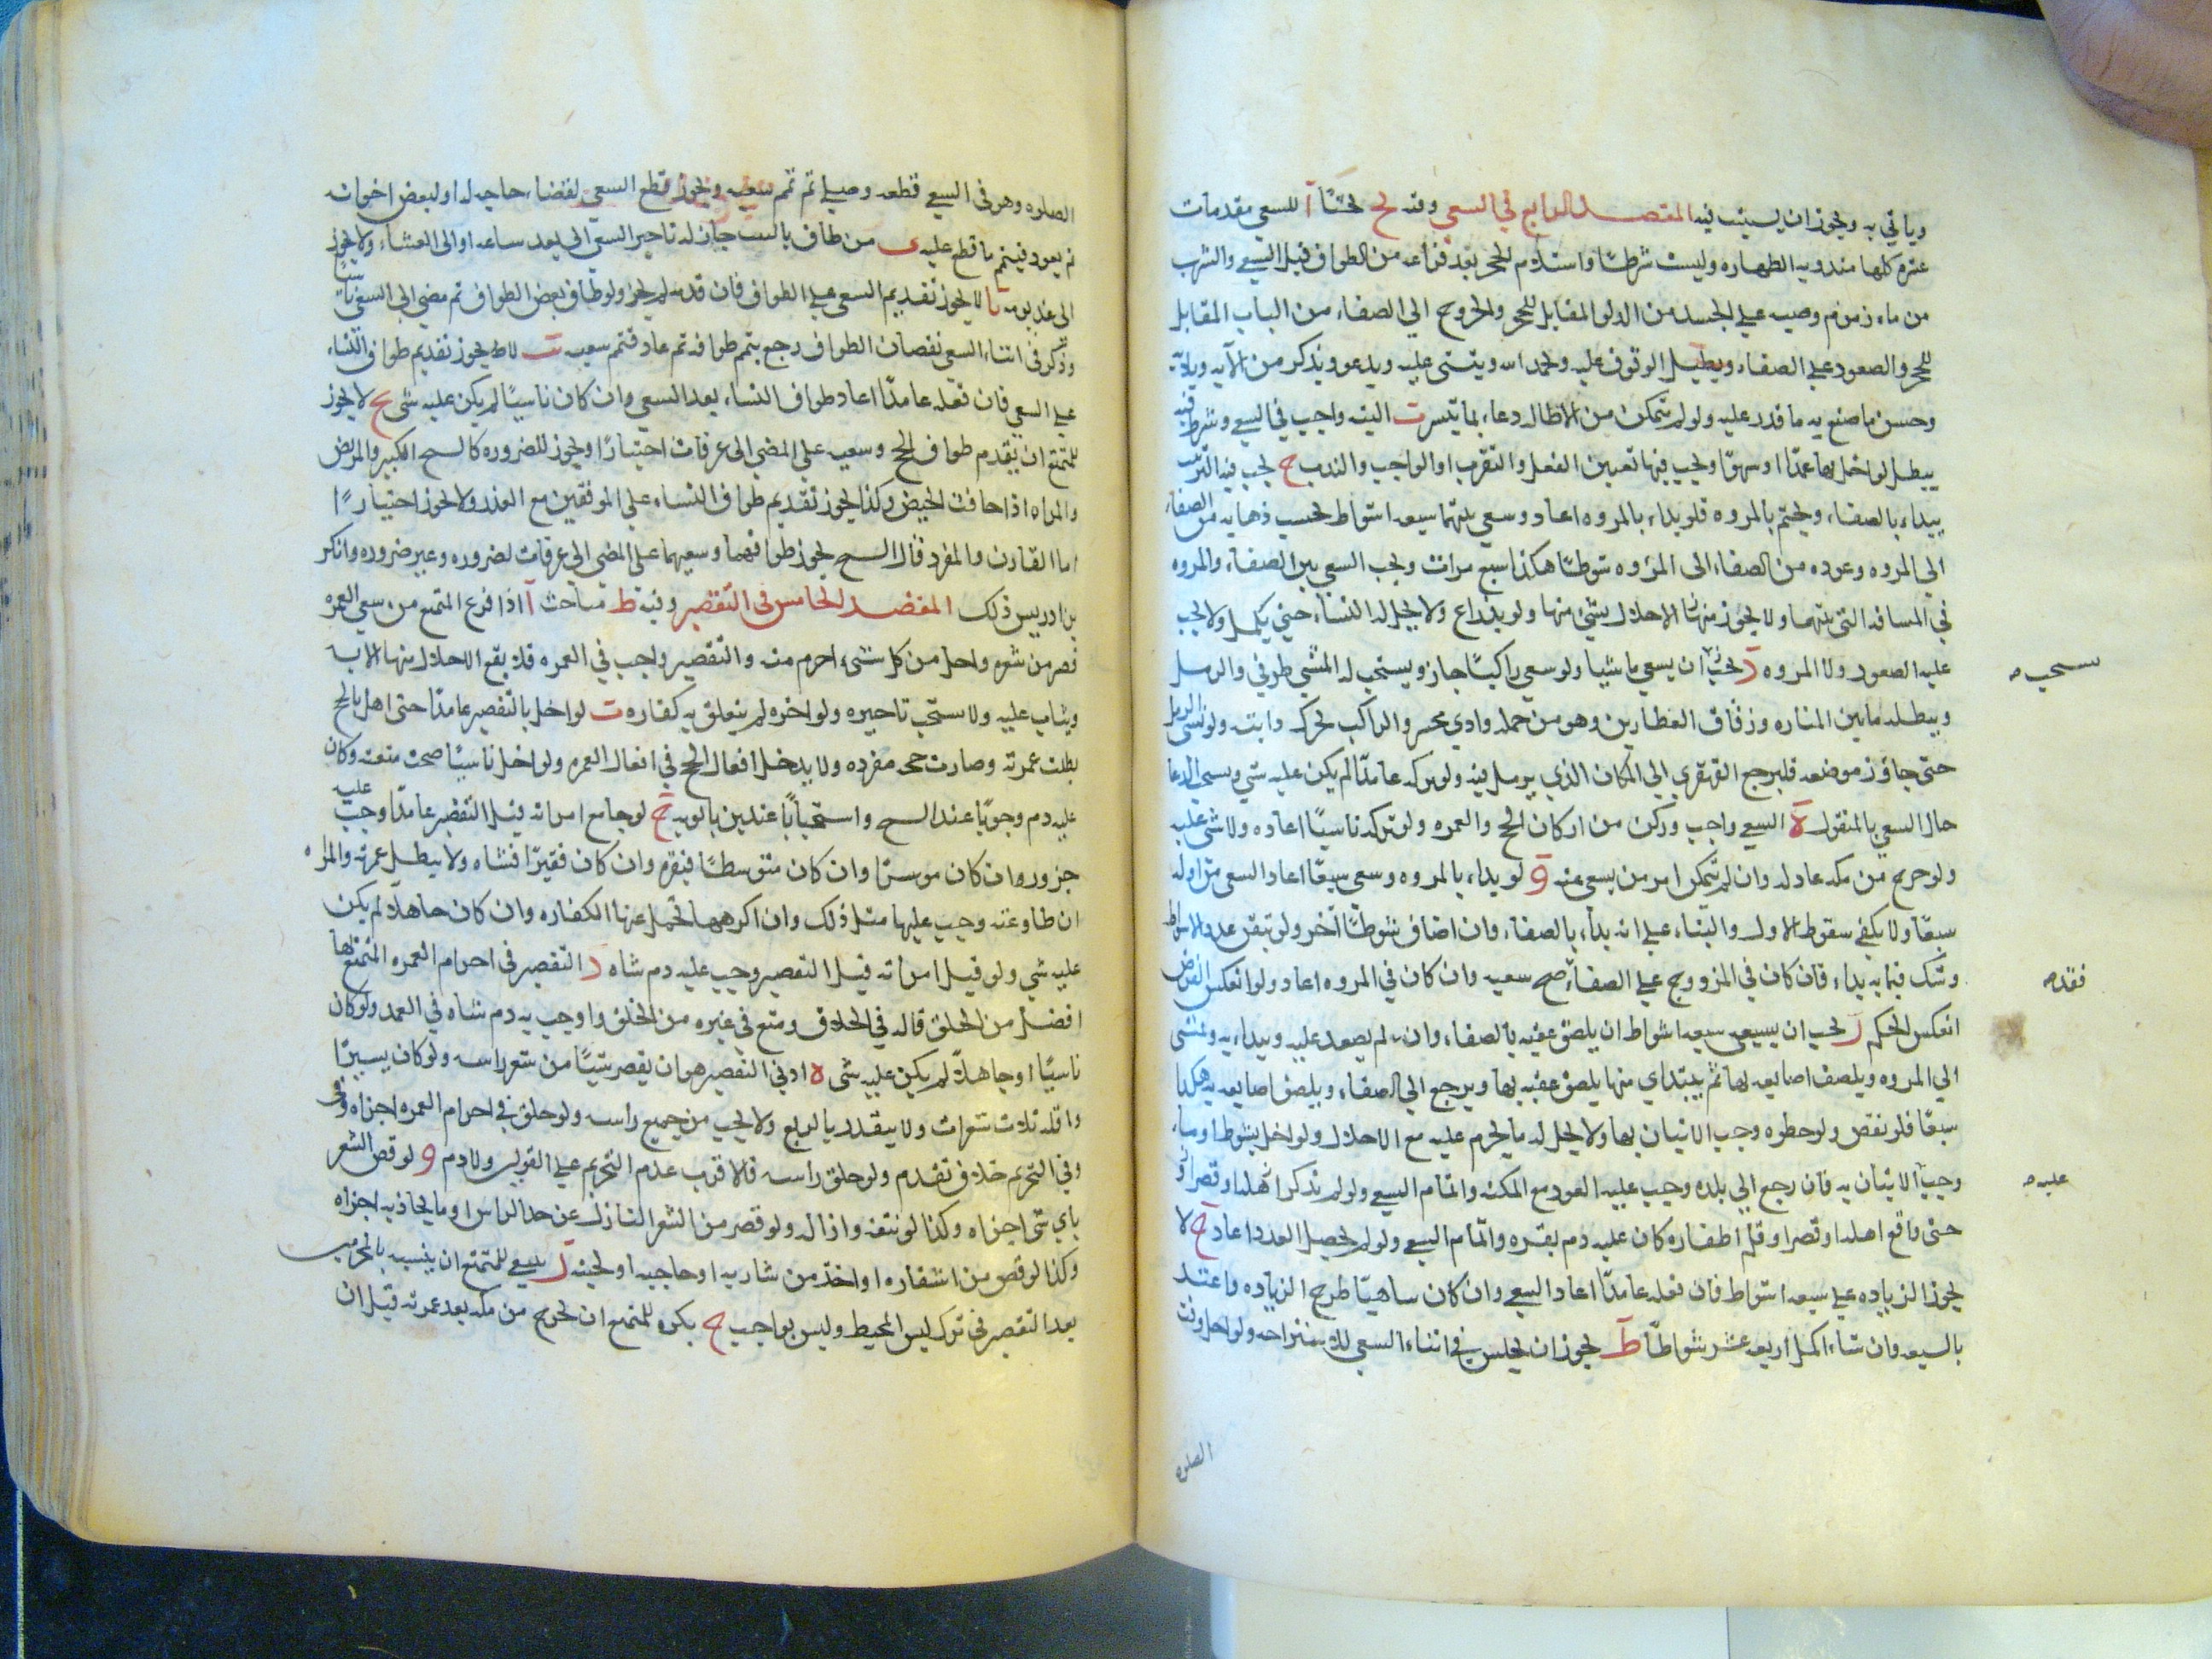 وياتي به ويجوز ان يستنيب فيه المقصد الرابع في السعي وفيه يح بحثا آ للسعي مقدمات
عشره كلها مندوبه الطهاره وليست شرطا واستلام الحجر بعد فراغه من الطواف قبل السعي والشرب
من ماء زمزم وصبه علي الجسد من الدلو المقابل للحجر والخروج الي الصفاء من الباب المقابل
للحجر والصعود علي الصفاء ويطيل الوقوف عليه ويحمد الله ويثني عليه ويدعو ويذكر من الآيه وبلآيه
وحسن ما صنع به ما قدر عليه ولو لم يتمكن من الاطاله دعاء بما تيسر ت النيه واجب في السعي وشرط فيه
يبطل لو اخل بها عمدا او سهوا ويجب فيها تعيين الفعل والتقرب او الواجب والندب ح يجب فيه الترتيب
يبداء بالصفاء ويختم بالمروه فلو بداء بالمروه اعاد وسعي بينهما سبعه اشواط يحسب ذهابه من الصفاء
الي المروه وعوده من الصفاء الى المروه شوطا هكذا سبع مرات ويجب السعي بين الصفاء والمروه
في المسافه التي بينهما ولا يجوز منها الاحلال بشئ منها ولو بذراع ولا يحل له النساء حتي يكمل ولا يجب
عليه الصعود ولا المروه د يجب ان يسعي ماشيا ولو سعي راكبا جاز ويستحب له المشي طرفي والرمل
سحب صه
وسطه ما بين المناره وزقاق العطارين وهو من حمله وادي محسر والراكب يحرك دابته ولو نسي الرمل
حتى جاوز موضعه فليرجع القهقري الي المكان الذي يرمل فيه ولو تركه عامدا لم يكن عليه شي ويستحب الدعا
حال السعي بالمنقول ه السعي واجب وركن من اركان الحج والعمره ولو تركه ناسيا اعاده ولا شي عليه
ولو خرج من مكه عاد له وان لم يتمكن امر من يسعي عنه و لو بداء بالمروه وسعي سبعا اعاد السعي من اوله
سبعا ولا يكفي سقوط الاول والبناء علي انه بداء بالصفاء وان اضاف شوطا آخر ولو تيقن عدد الاشواط
وشك فيما به بداء فان كان في المزدوج علي الصفاء صح سعيه وان كان في المروه اعاد ولو انعكس الفرض
فقد صه
انعكس الحكم ز يجب ان يسعي سبعه اشواط ان يلصق عقبه بالصفاء وان لم يصعد عليه ويبداء به ويمشي
الي المروه ويلصق اصابعه بها ثم يبتدي منها يلصق عقبه بها ويرجع الي الصفاء ويلصق اصابعه به هكذا
سبعا فلو نقص ولو خطوه وجب الاتيان بها ولا يحل له ما يحرم عليه مع الاحلال ولو اخل بشوط او ما
وجب الاتيان به فان رجع الي بلده وجب عليه العود مع المكنه واتمام السعي ولو لم يذكر اهله او قصر او
عليه صه
حتى واقع اهله او قصر او قلم اظفاره كان عليه دم بقره واتمام السعي ولو لم يحصل العدد اعاد ح لا
يجوز الزياده علي سبعه اشواط فان فعله عامدا اعاد السعي وان كان ساهيا طرح الزياده واعتد
بالسبعه وان شاء اكمل اربعه عشر شواطا ط يجوز ان يجلس في اثناء السعي للاستراحه ولو دخل وقت
الصلوه
الصلوه وهو في السعي قطعه وصلي ثم تمم سعيه ويجوز قطع السعي لقضاء حاجه له او لبعض اخوانه
ثم يعود فيتمم ما قطع عليه ى من طاف بالبيت جاز له تاخير السعي الي بعد ساعه او الى العشاء ولا يجوز
الي غد يومه يا لا يجوز تقديم السعي علي الطواف فان قدمه لم يجز ولو طاف بعض الطواف ثم مضي الي السعي ناسيا
وذكر في اثناء السعي نقصان الطواف رجع يتمم طوافه ثم عاد فتمم سعيه يت لا يجوز تقديم طواف النساء
علي السعي فان فعله عامدا اعاد طواف النساء بعد السعي وان كان ناسيا لم يكن عليه شي يح لا يجوز
للمتمتع ان يقدم طواف الحج وسعيه علي المضي الي عرفات اختيارا ويجوز للضروره كالسح الكبير والمريض
والمراه اذا خافت الحيض وكذا يجوز تقديم طواف النساء علي الموقفين مع العذر ولا يجوز اختيارا
اما القارن والمفرد فقال السح يجوز طوافهما وسعيهما علي المضي الي عرفات لضروره وغير ضروره وانكر
بن ادريس ذلك المقصد الخامس في التقصير وفيه ط مباحث آ اذا فرغ المتمتع من سعي العمره
قصر من شعره واحل من كل شئ احرم منه والتقصير واجب في العمره فلا يقع الاحلال منها الا به
ويثاب عليه ولا يستحب تاخيره ولو اخره لم يتعلق به كفاره ت لو اخل بالتقصير عامدا حتى اهل بالحج
بطلت عمرته وصارت حجه مفرده ولا يدخل افعال الحج في افعال العمره ولو اخل ناسيا صحت متعته وكان
عليه دم وجوبا عند السح واستحبابا عند بن بابويه ح لو جامع امراته قبل التقصير عامدا وجب عليه
جزور وان كان موسرا وان كان متوسطا فبقره وان كان فقيرا فشاه ولا يبطل عمرته والمراه
ان طاوعته وجب عليها مثل ذلك وان اكرهها تحمل عنها الكفاره وان كان جاهلا لم يكن
عليه شي ولو قبل امراته قبل التقصير وجب عليه دم شاه د التقصير في احرام العمره المتمتع بها
افضل من الحلق قاله في الخلاف ومنع في غيره من الحلق واوجب به دم شاه في العمد ولو كان
ناسيا او جاهلا لم يكن عليه شي ه ادني التقصير هو ان يقصر شيئا من شعر راسه ولو كان يسيرا
واقله ثلاث شعرات ولا يتقدر بالربع ولا يجب من جميع راسه ولو حلق في احرام العمره اجزاه
وفي التحريم خلاف تقدم ولو حلق راسه فالاقرب عدم التحريم علي القولين ولا دم و لو قص الشعر
باي شي اجزاه وكذا لو نتفه وازاله ولو قصر من الشعر النازل عن حد الراس او ما يحاذيه اجزاه
وكذا لو قص من اشفاره او اخذ من شاربه او حاجبه او لحيته ز ينبغي للمتمتع ان يتشبه بالمحرمين
بعد التقصير في ترك لبس المخيط وليس بواجب ح يكره للمتمتع ان يخرج من مكه بعد عمرته قبل ان